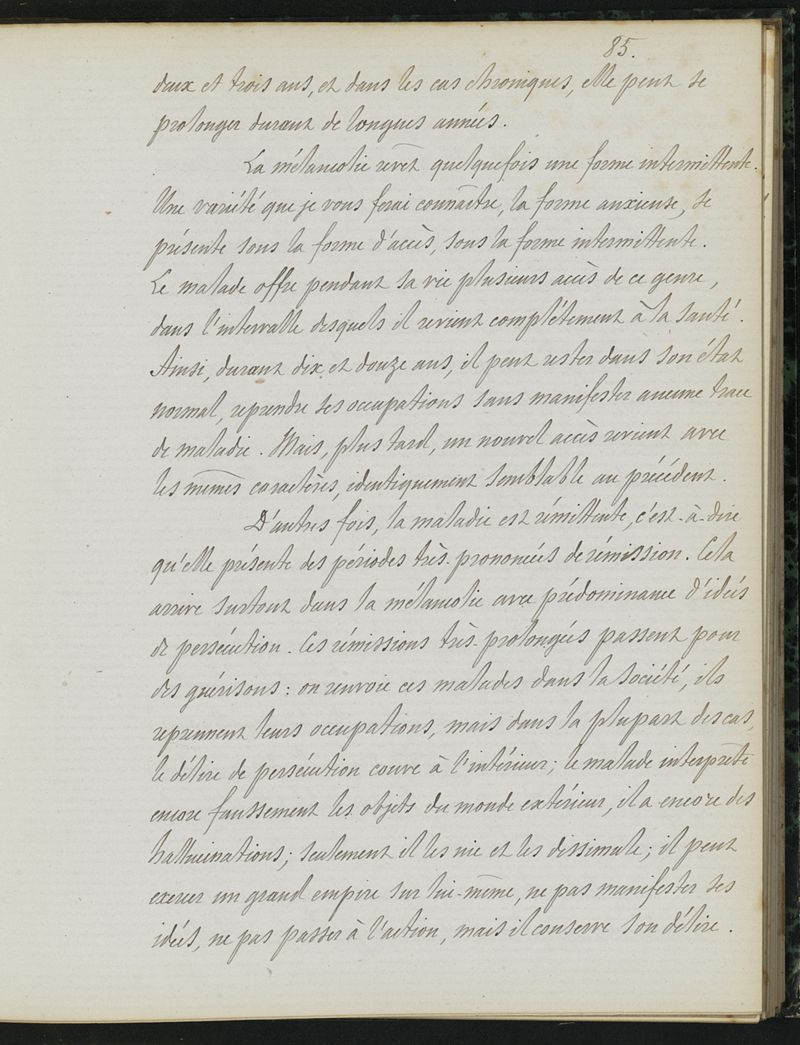 85.
deux et trois ans, et dans les cas chroniques, elle peut se
prolonger durant de longues années.
La mélancolie revêt quelquefois une forme intermittente.
Une variété que je vous ferai connaître, la forme anxieuse, se
présente sous la forme d'accès, sous la forme intermittente.
Le malade offre pendant sa vie plusieurs accès de ce genre,
dans l'intervalle desquels il revient complétement à la santé.
Ainsi, durant dix et douze ans, il peut rester dans son état
normal, reprendre ses occupations sans manifester aucune trace
de maladie. Mais, plus tard, un nouvel accès revient avec
les mêmes caractères, identiquement semblable au précédent.
D'autres fois, la maladie est rémittente, c'est-à-dire
qu'elle présente des périodes très-prononcées de rémission. Cela
arrive surtout dans la mélancolie avec prédominance d'idées
de persécution. Ces rémissions très-prolongées passent pour
des guérisons: on renvoie ces malades dans la société, ils
reprennent leurs occupations, mais dans la plupart des cas,
le délire de persécution couve à l'intérieur; le malade interprète
encore faussement les objets du monde extérieur, il a encore des
hallucinations; seulement il les nie et les dissimule; il peut
exercer un grand empire sur lui-même, ne pas manifester ses
idées, ne pas passer à l'action, mais il conserve son délire.